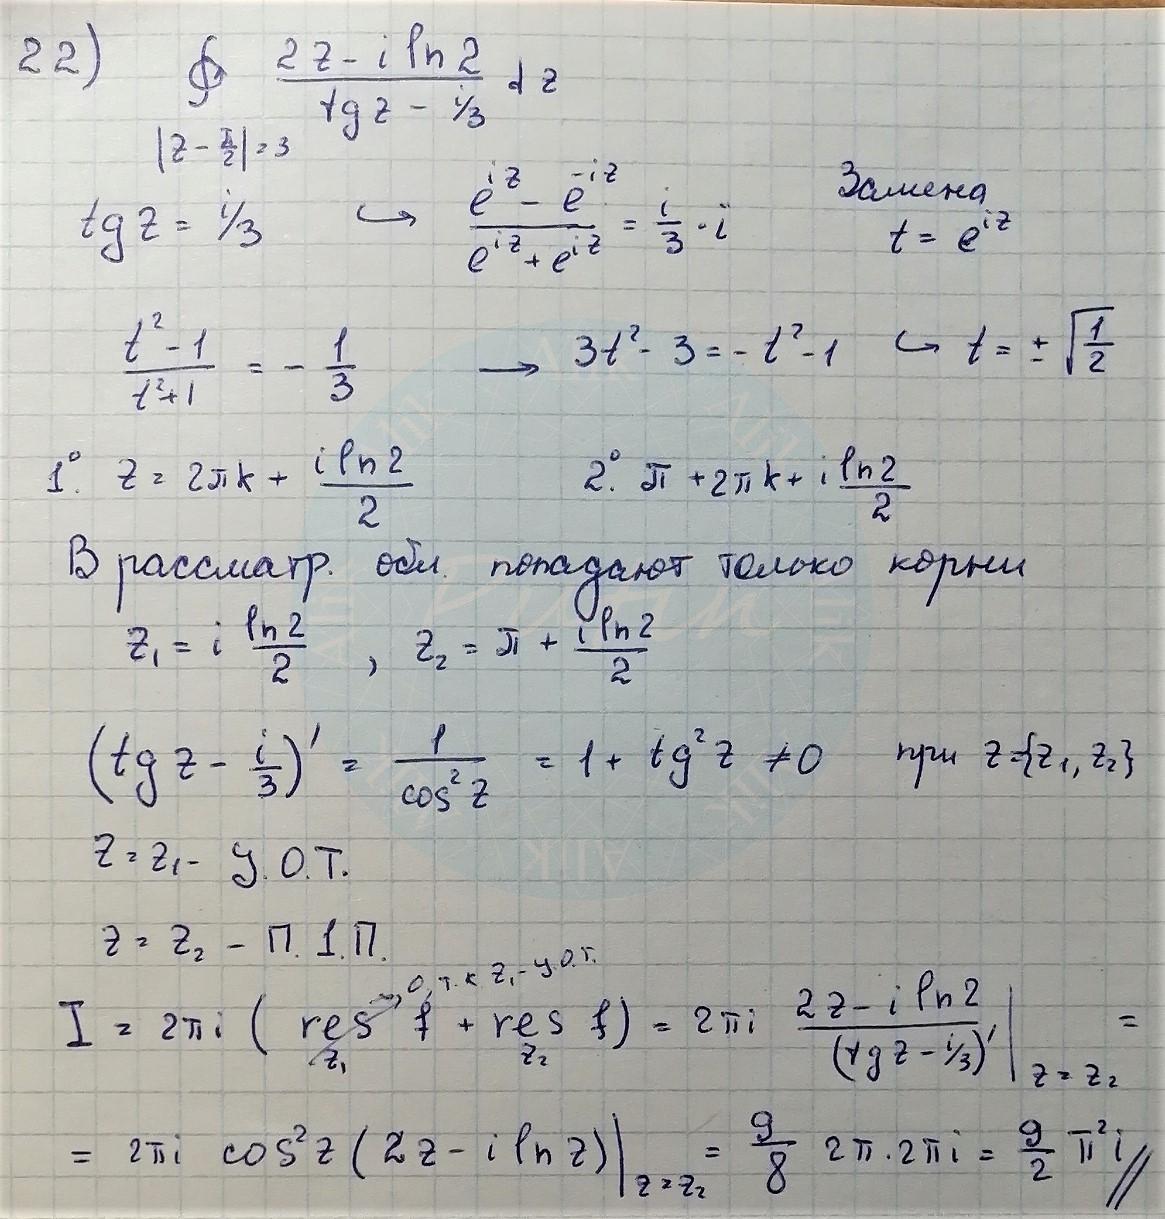 22) ∮ (2z - i ln 2)/(tg z - i/3) dz
|z - π/2| = 3
tg z = i/3 ↪ (e^{iz} - e^{-iz})/(e^{iz} + e^{iz}) = i/3 · i Замена t = e^{iz}
(t² - 1)/(t² + 1) = - 1/3 → 3t² - 3 = - t² - 1 ↪ t = ± √(1/2)
1°. z = 2πk + (i ln 2)/2 2°. π + 2πk + i (ln 2)/2
В рассматр. обл. попадают только корни
z₁ = i (ln 2)/2 , z₂ = π + (i ln 2)/2
(tg z - i/3)' = 1/(cos² z) = 1 + tg² z ≠ 0 при z = {z₁, z₂}
z = z₁ - У.О.Т.
z = z₂ - П.1.П.
I = 2πi ( res_{z₁} f → 0, т.к z₁ - У.О.Т. + res_{z₂} f) = 2πi (2z - i ln 2)/((tg z - i/3)') |_{z = z₂} =
= 2πi cos² z (2z - i ln z) |_{z = z₂} = 9/8 2π · 2πi = 9/2 π² i //